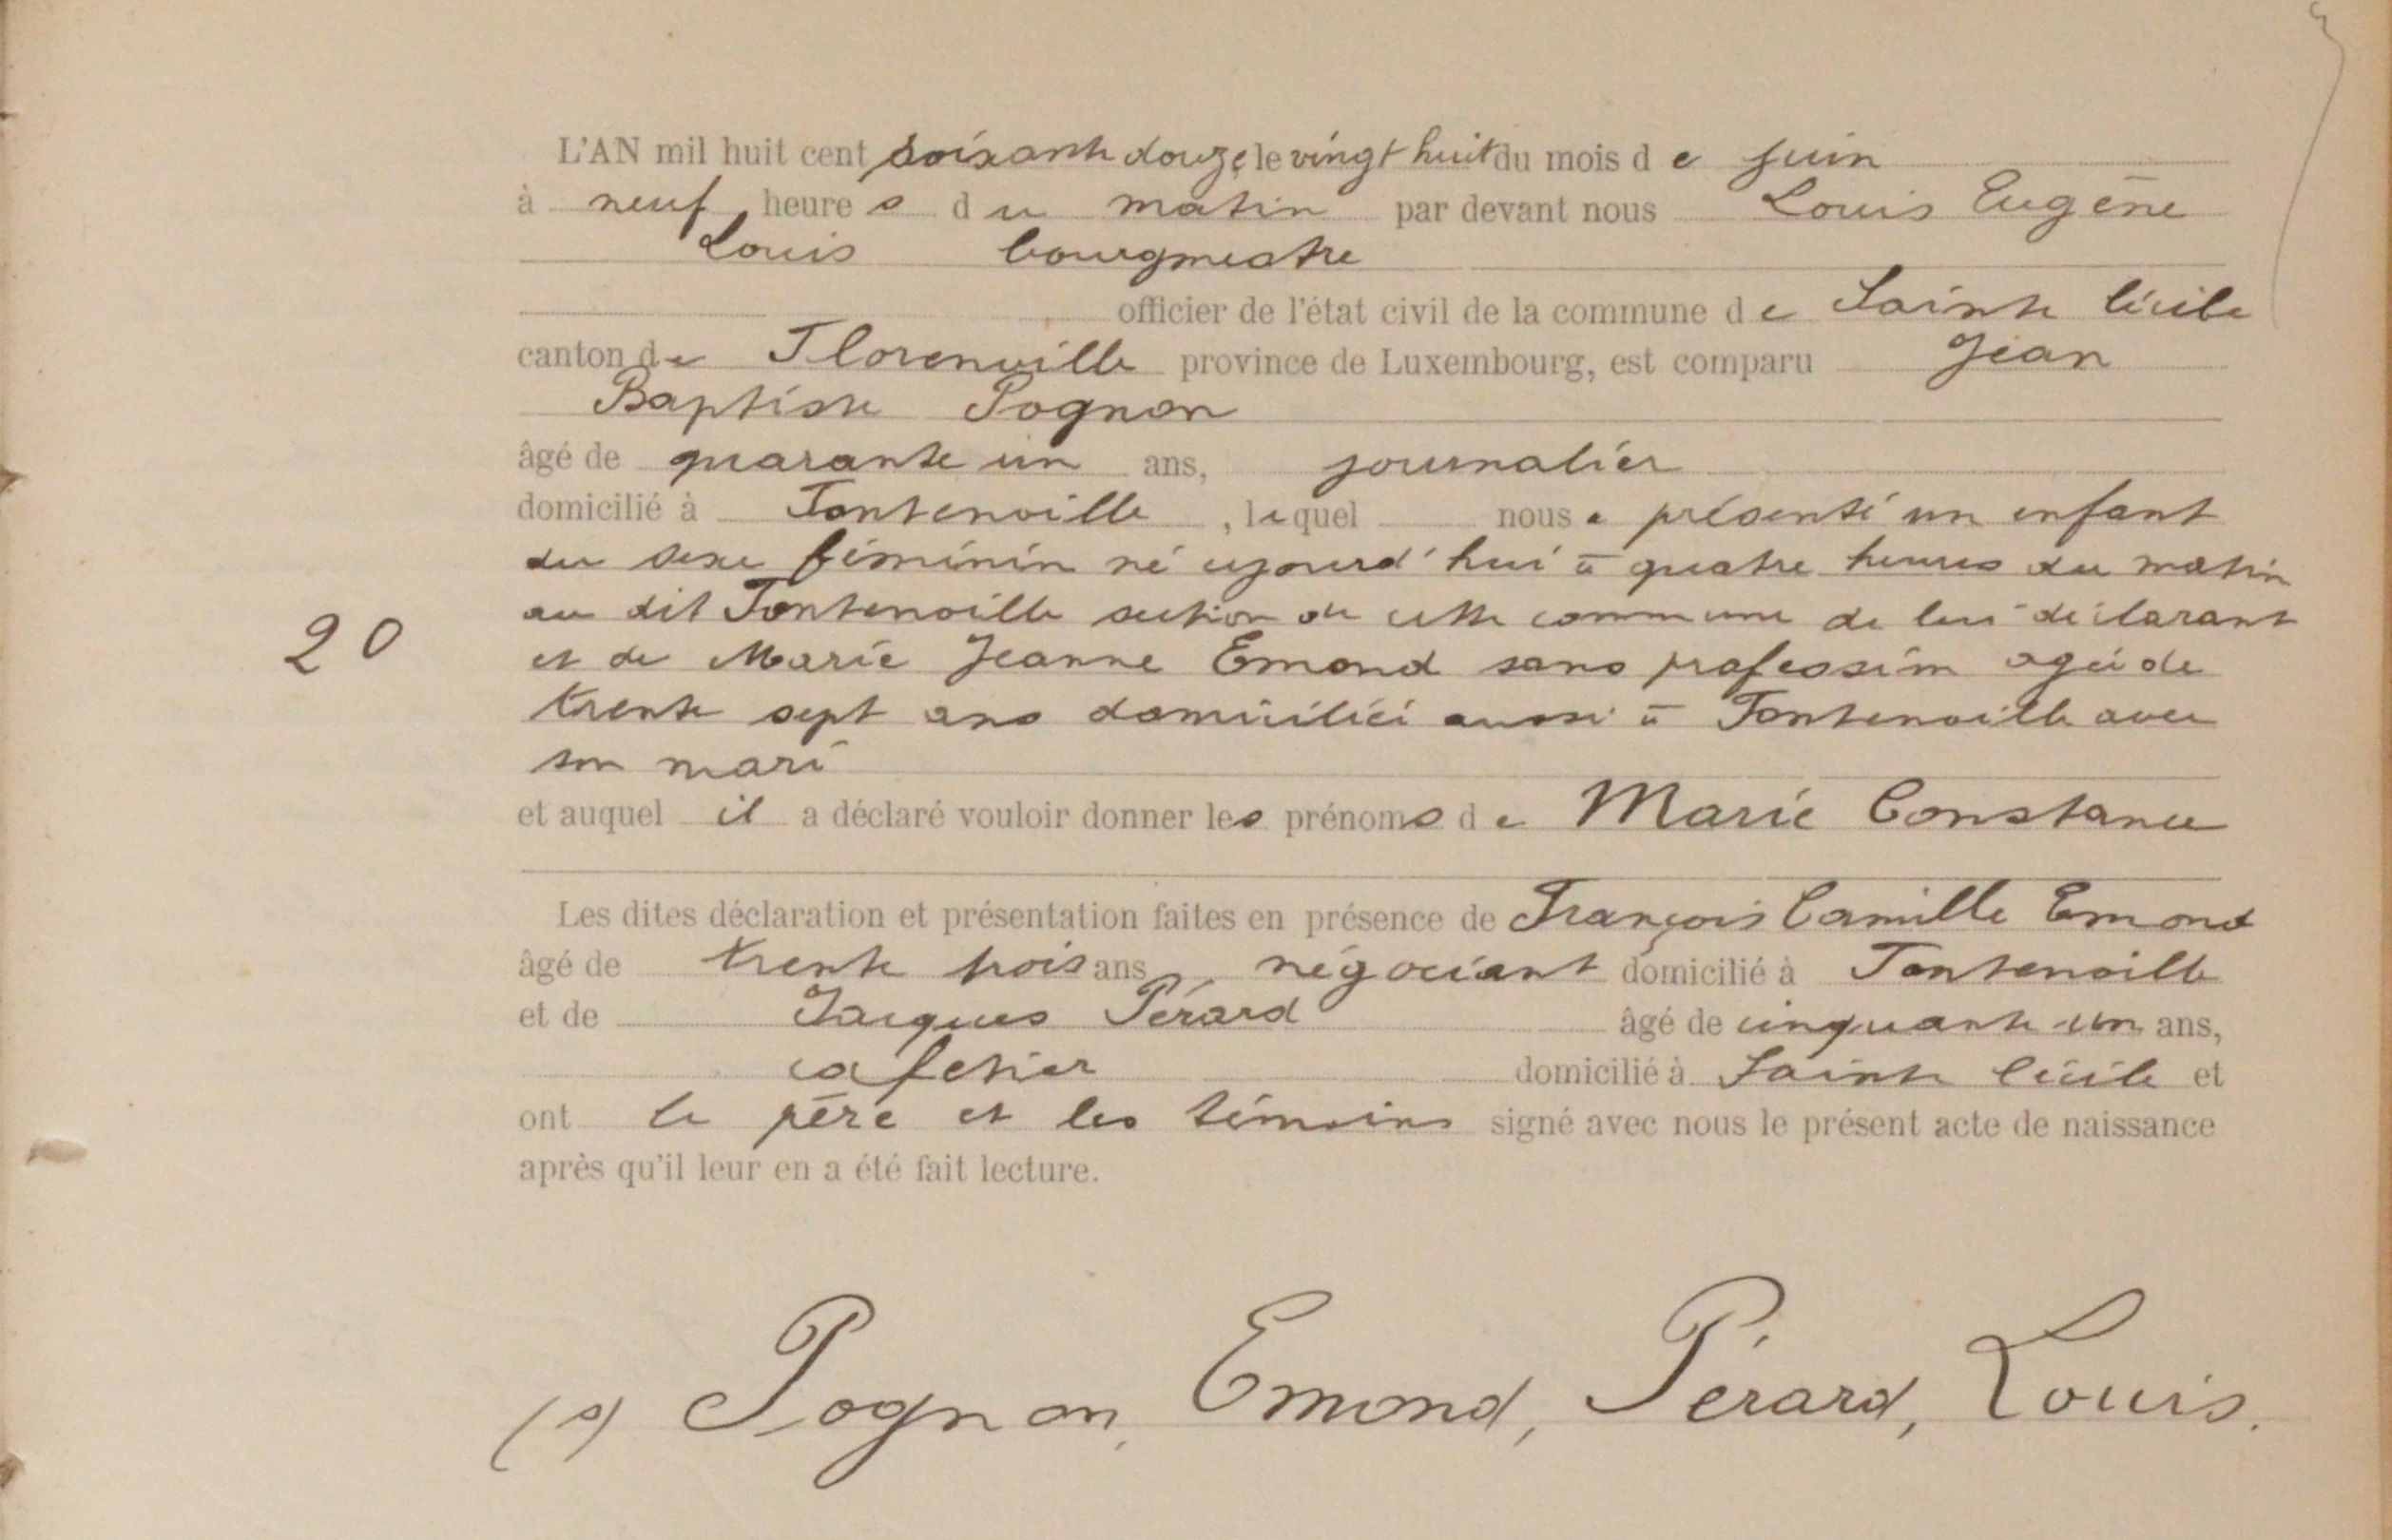 L'AN mil huit cent soixante douze le vingt huit du mois de juin
à neuf heures du matin par devant nous Louis Eugène
Louis bourgmestre
officier de l'état civil de la commune de Sainte Cécile
canton de Florenville province de Luxembourg, est comparu Jean
Baptiste Pognon
âgé de quarante un ans, journalier
domicilié à Fontenoille, lequel nous a présenté un enfant
du sexe féminin né aujourd'hui à quatre heures du matin
au dit Fontenoille section de cette commune de lui déclarant
et de Marie Jeanne Emond sans profession agée de
trente sept ans domiciliée aussi à Fontenoille avec
son mari
20
et auquel il a déclaré vouloir donner les prénoms de Marie Constance
Les dites déclaration et présentation faites en présence de François Camille Emond
âgé de trente trois ans, négociant domicilié à Fontenoille
et de Jacques Pérard âgé de cinquante un ans,
cafetier domicilié à Sainte Cécile et
ont le père et les témoins signé avec nous le présent acte de naissance
après qu'il leur en a été fait lecture.
(s) Pognon, Emond, Pérard, Louis.